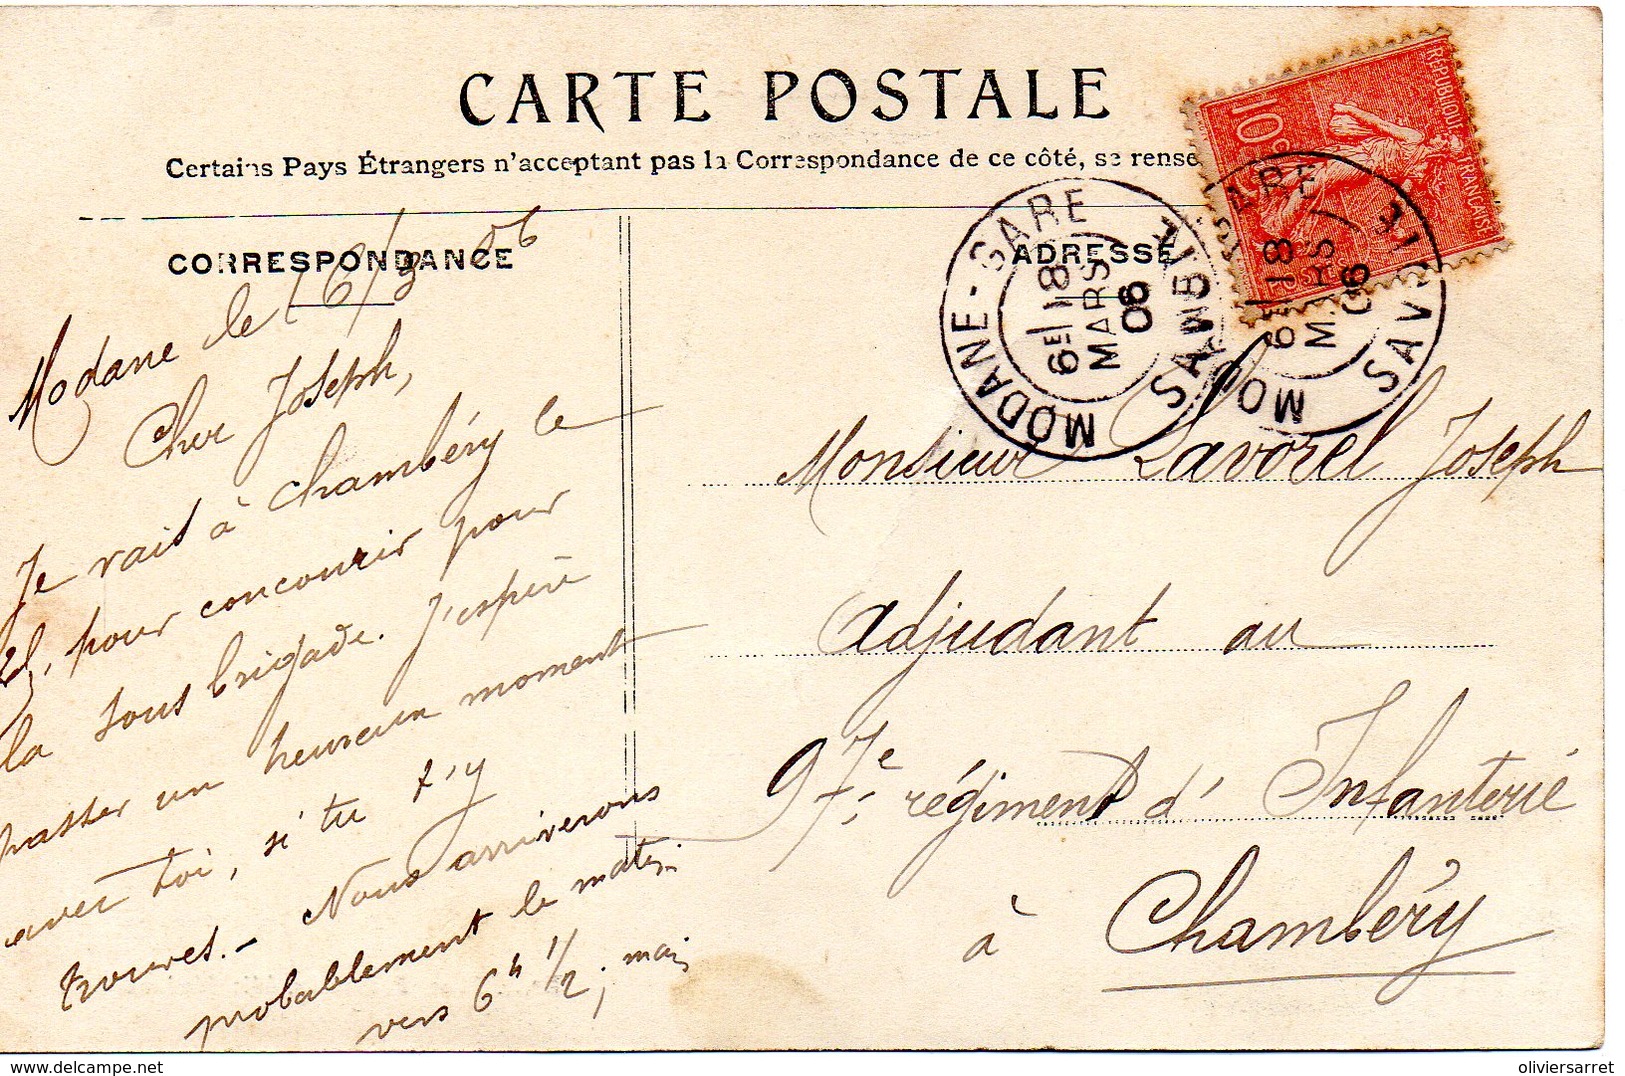 CARTE POSTALE
Certains Pays Étrangers n'acceptant pas la Correspondance de ce côté, se rense
CORRESPONDANCE
ADRESSE
RÉPUBLIQUE FRANÇAISE
10
MODANE-GARE
SAVOIE
6E 18
MARS
06
GARE
MO
SAVOIE
6E 18
MARS
06
Modane le 16/3 06
Cher Joseph,
Je vais à Chambéry le
pour concourir pour
la sous brigade. J'espère
passer un heureux moment
avec toi, si tu t'y
trouves.- Nous arriverons
probablement le matin
vers 6h 1/2; mais
Monsieur Lavorel Joseph
Adjudant au
97e régiment d'Infanterie
à Chambéry
oliviersarret